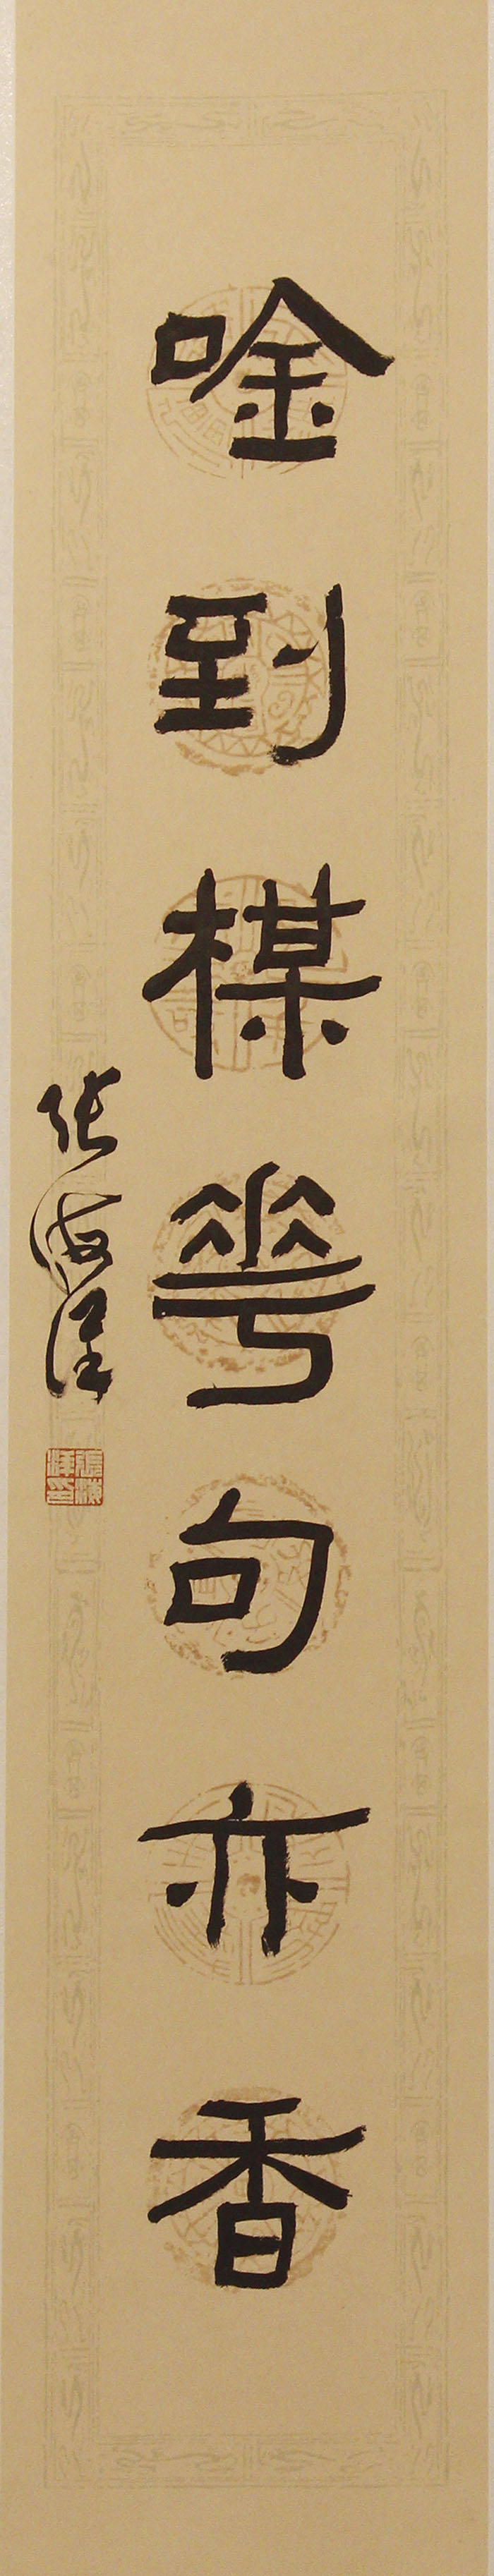 唫到楳華句亦香
张海洋